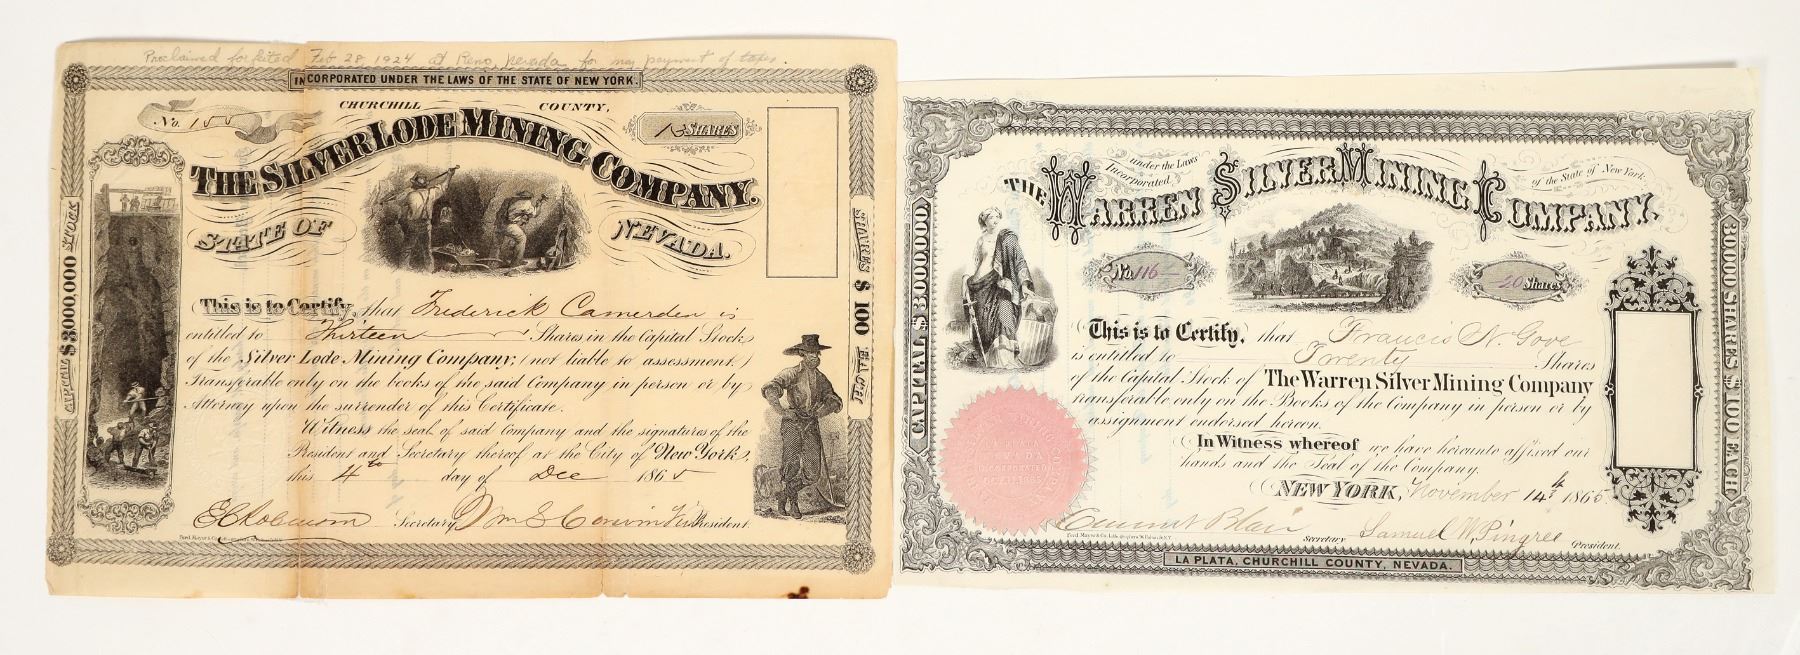 Proclaimed forfeited Feb 28, 1924 at Reno, Nevada for non payment of taxes.
INCORPORATED UNDER THE LAWS OF THE STATE OF NEW YORK.
CHURCHILL COUNTY,
No. 155
13 SHARES
THE SILVER LODE MINING COMPANY.
STATE OF NEVADA.
CAPITAL $3,000,000 STOCK
SHARES $100 EACH
This is to Certify, that Frederick Camerden is
entitled to Thirteen Shares in the Capital Stock
of the Silver Lode Mining Company; (not liable to assessment.)
Transferable only on the books of the said Company in person or by
Attorney upon the surrender of this Certificate.
Witness the seal of said Company and the signatures of the
President and Secretary thereof at the City of New York,
this 4th day of Dec 1865
Secretary President
THE WARREN SILVER MINING COMPANY.
Incorporated under the Laws of the State of New York
No 116
20 Shares
CAPITAL $3,000,000
30,000 SHARES $100 EACH
This is to Certify, that Francis N. Gove
is entitled to Twenty Shares
of the Capital Stock of The Warren Silver Mining Company
transferable only on the Books of the Company in person or by
assignment endorsed hereon.
In Witness whereof we have hereunto affixed our
hands and the Seal of the Company.
NEW YORK, November 14th 1865
Secretary Samuel W. Pingree President.
LA PLATA, CHURCHILL COUNTY, NEVADA.